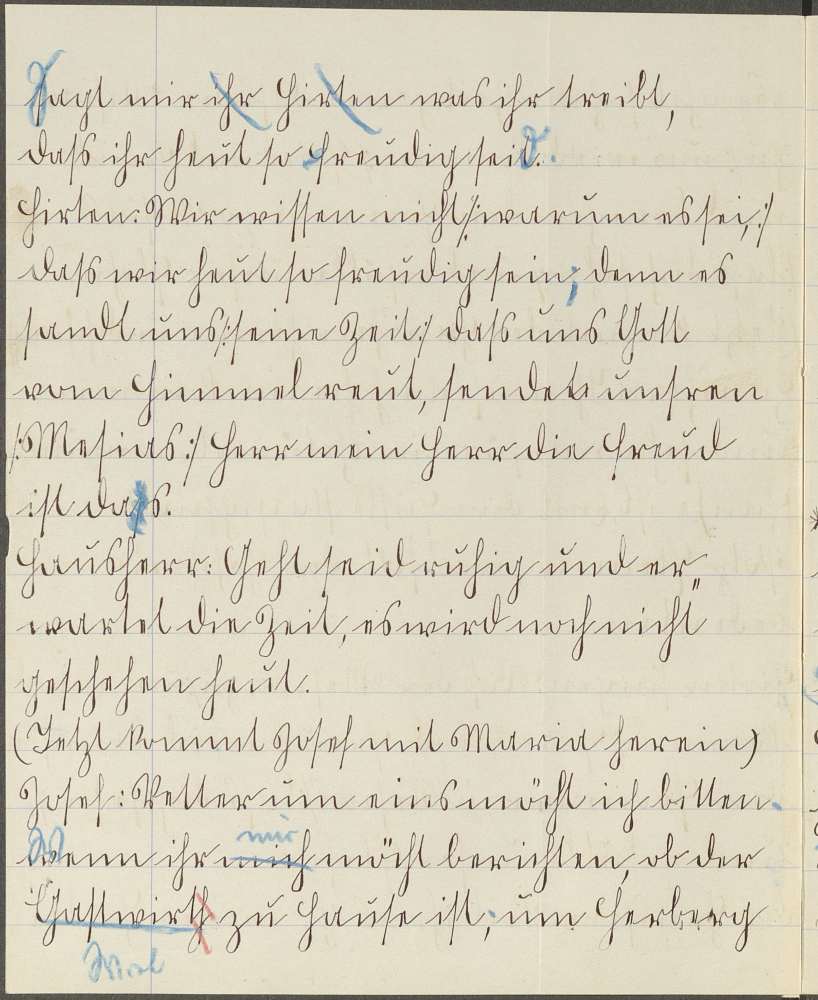 Sagt mir ihr Hirten was ihr treibt,
dass ihr heut so freudig seid.
Hirten: Wir wissen nicht /:warum es sei,:/
dass wir heut so freudig sein; denn es
sandt uns /:seine Zeit:/ dass uns Gott
vom Himmel reut, sendet unsren
/:Mesias:/ Herr mein Herr die Freud
ist das.
Hausherr: Geht seid ruhig und er„
wartet die Zeit, es wird noch nicht
geschehen heut.
(Jetzt kommt Josef mit Maria herein)
Josef: Vetter um eins möcht ich bitten.
mir
Wenn ihr mich möcht berichten, ob der
Gastwirth zu Hause ist; um Herberg